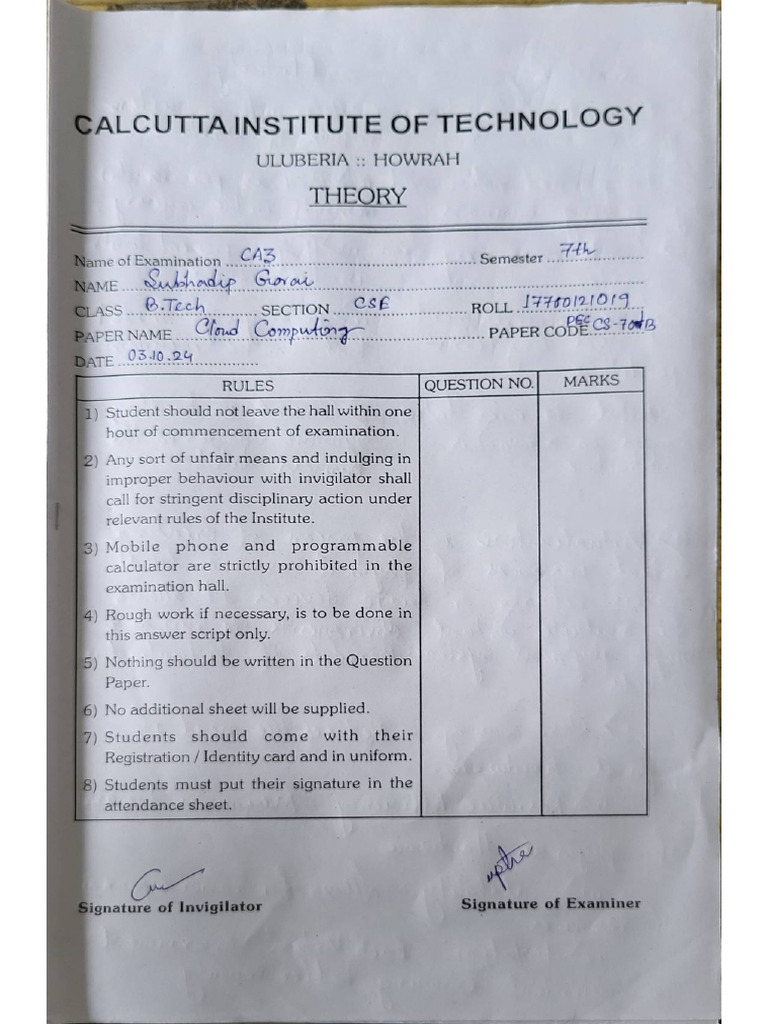 CALCUTTA INSTITUTE OF TECHNOLOGY
ULUBERIA :: HOWRAH
THEORY
Name of Examination CA3 Semester 7th
NAME Subhadip Gorai
CLASS B.Tech SECTION CSE ROLL 17700121019
PAPER NAME Cloud Computing PAPER CODE PEC CS-701B
DATE 03.10.24
RULES QUESTION NO. MARKS
1) Student should not leave the hall within one
hour of commencement of examination.
2) Any sort of unfair means and indulging in
improper behaviour with invigilator shall
call for stringent disciplinary action under
relevant rules of the Institute.
3) Mobile phone and programmable
calculator are strictly prohibited in the
examination hall.
4) Rough work if necessary, is to be done in
this answer script only.
5) Nothing should be written in the Question
Paper.
6) No additional sheet will be supplied.
7) Students should come with their
Registration / Identity card and in uniform.
8) Students must put their signature in the
attendance sheet.
Signature of Invigilator Signature of Examiner